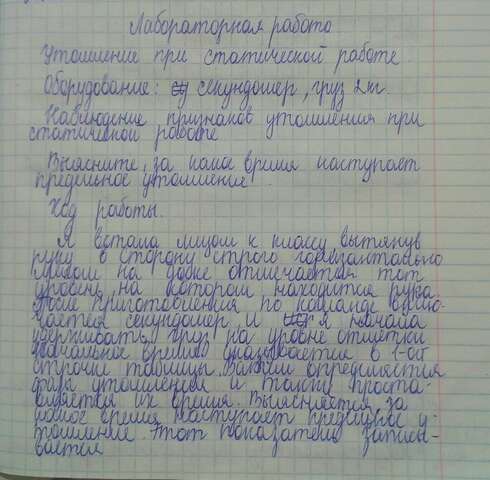 Лабораторная работа
Утомление при статической работе
Оборудование: секундомер, груз 2 кг.
Наблюдение признаков утомления при
статической работе
Выясните, за какое время наступает
предельное утомление.
Ход работы.
Я встала лицом к классу вытянув
руку в сторону строго горизонтально
мелом на доске отмечается тот
уровень на котором находится рука.
После приготовления по команде вклю-
чается секундомер и я начала
удерживать груз на уровне отметки
Начальное время указывается в 1-ой
строчке таблицы. Затем определяется
фазы утомления и также проста-
вляется их время. Выясняется за
какое время наступает предельное у-
томление. Этот показатель записы-
вается